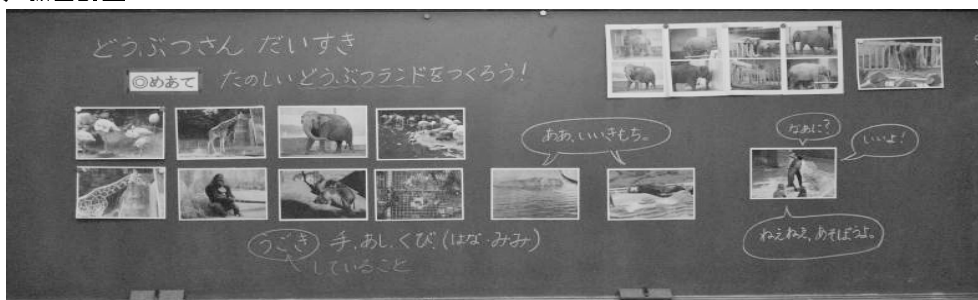 どうぶつさん だいすき
◎めあて たのしいどうぶつランドをつくろう!
ああ、いいきもち。
なあに?
いいよ!
ねえねえ、あそぼうよ。
うごき 手、あし、くび、(はな・みみ)
していること